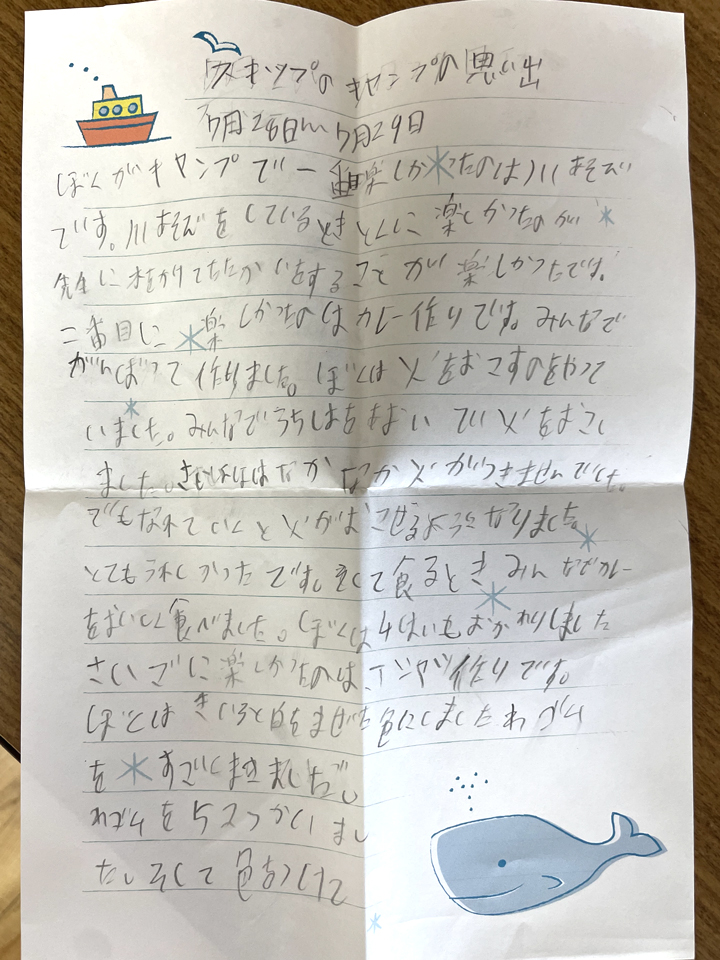 スキップのキャンプの思い出
7月28日〜7月29日
ぼくがキャンプで一番楽しかったのは川あそび
です。川あそびをしているときとくに楽しかったのが
先生に水をかけてたたかいをすることが楽しかったです。
二番目に楽しかったのはカレー作りです。みんなで
がんばって作りました。ぼくは火をおこすのをやって
いました。みんなでうちわをあおいで火をおこし
ました。さいしょはなかなか火がつきませんでした。
でもなれていくと火がおこせるようになりました。
とてもうれしかったです。そして食るときみんなでカレー
をおいしく食べました。ぼくは4はいもおかわりしました
さいごに楽しかったのはTシャツ作りです。
ぼくはきいろと白をまぜた色にしましたわゴム
をすごくまきました。
わゴムを52つかいまし
た。そして色をつけて